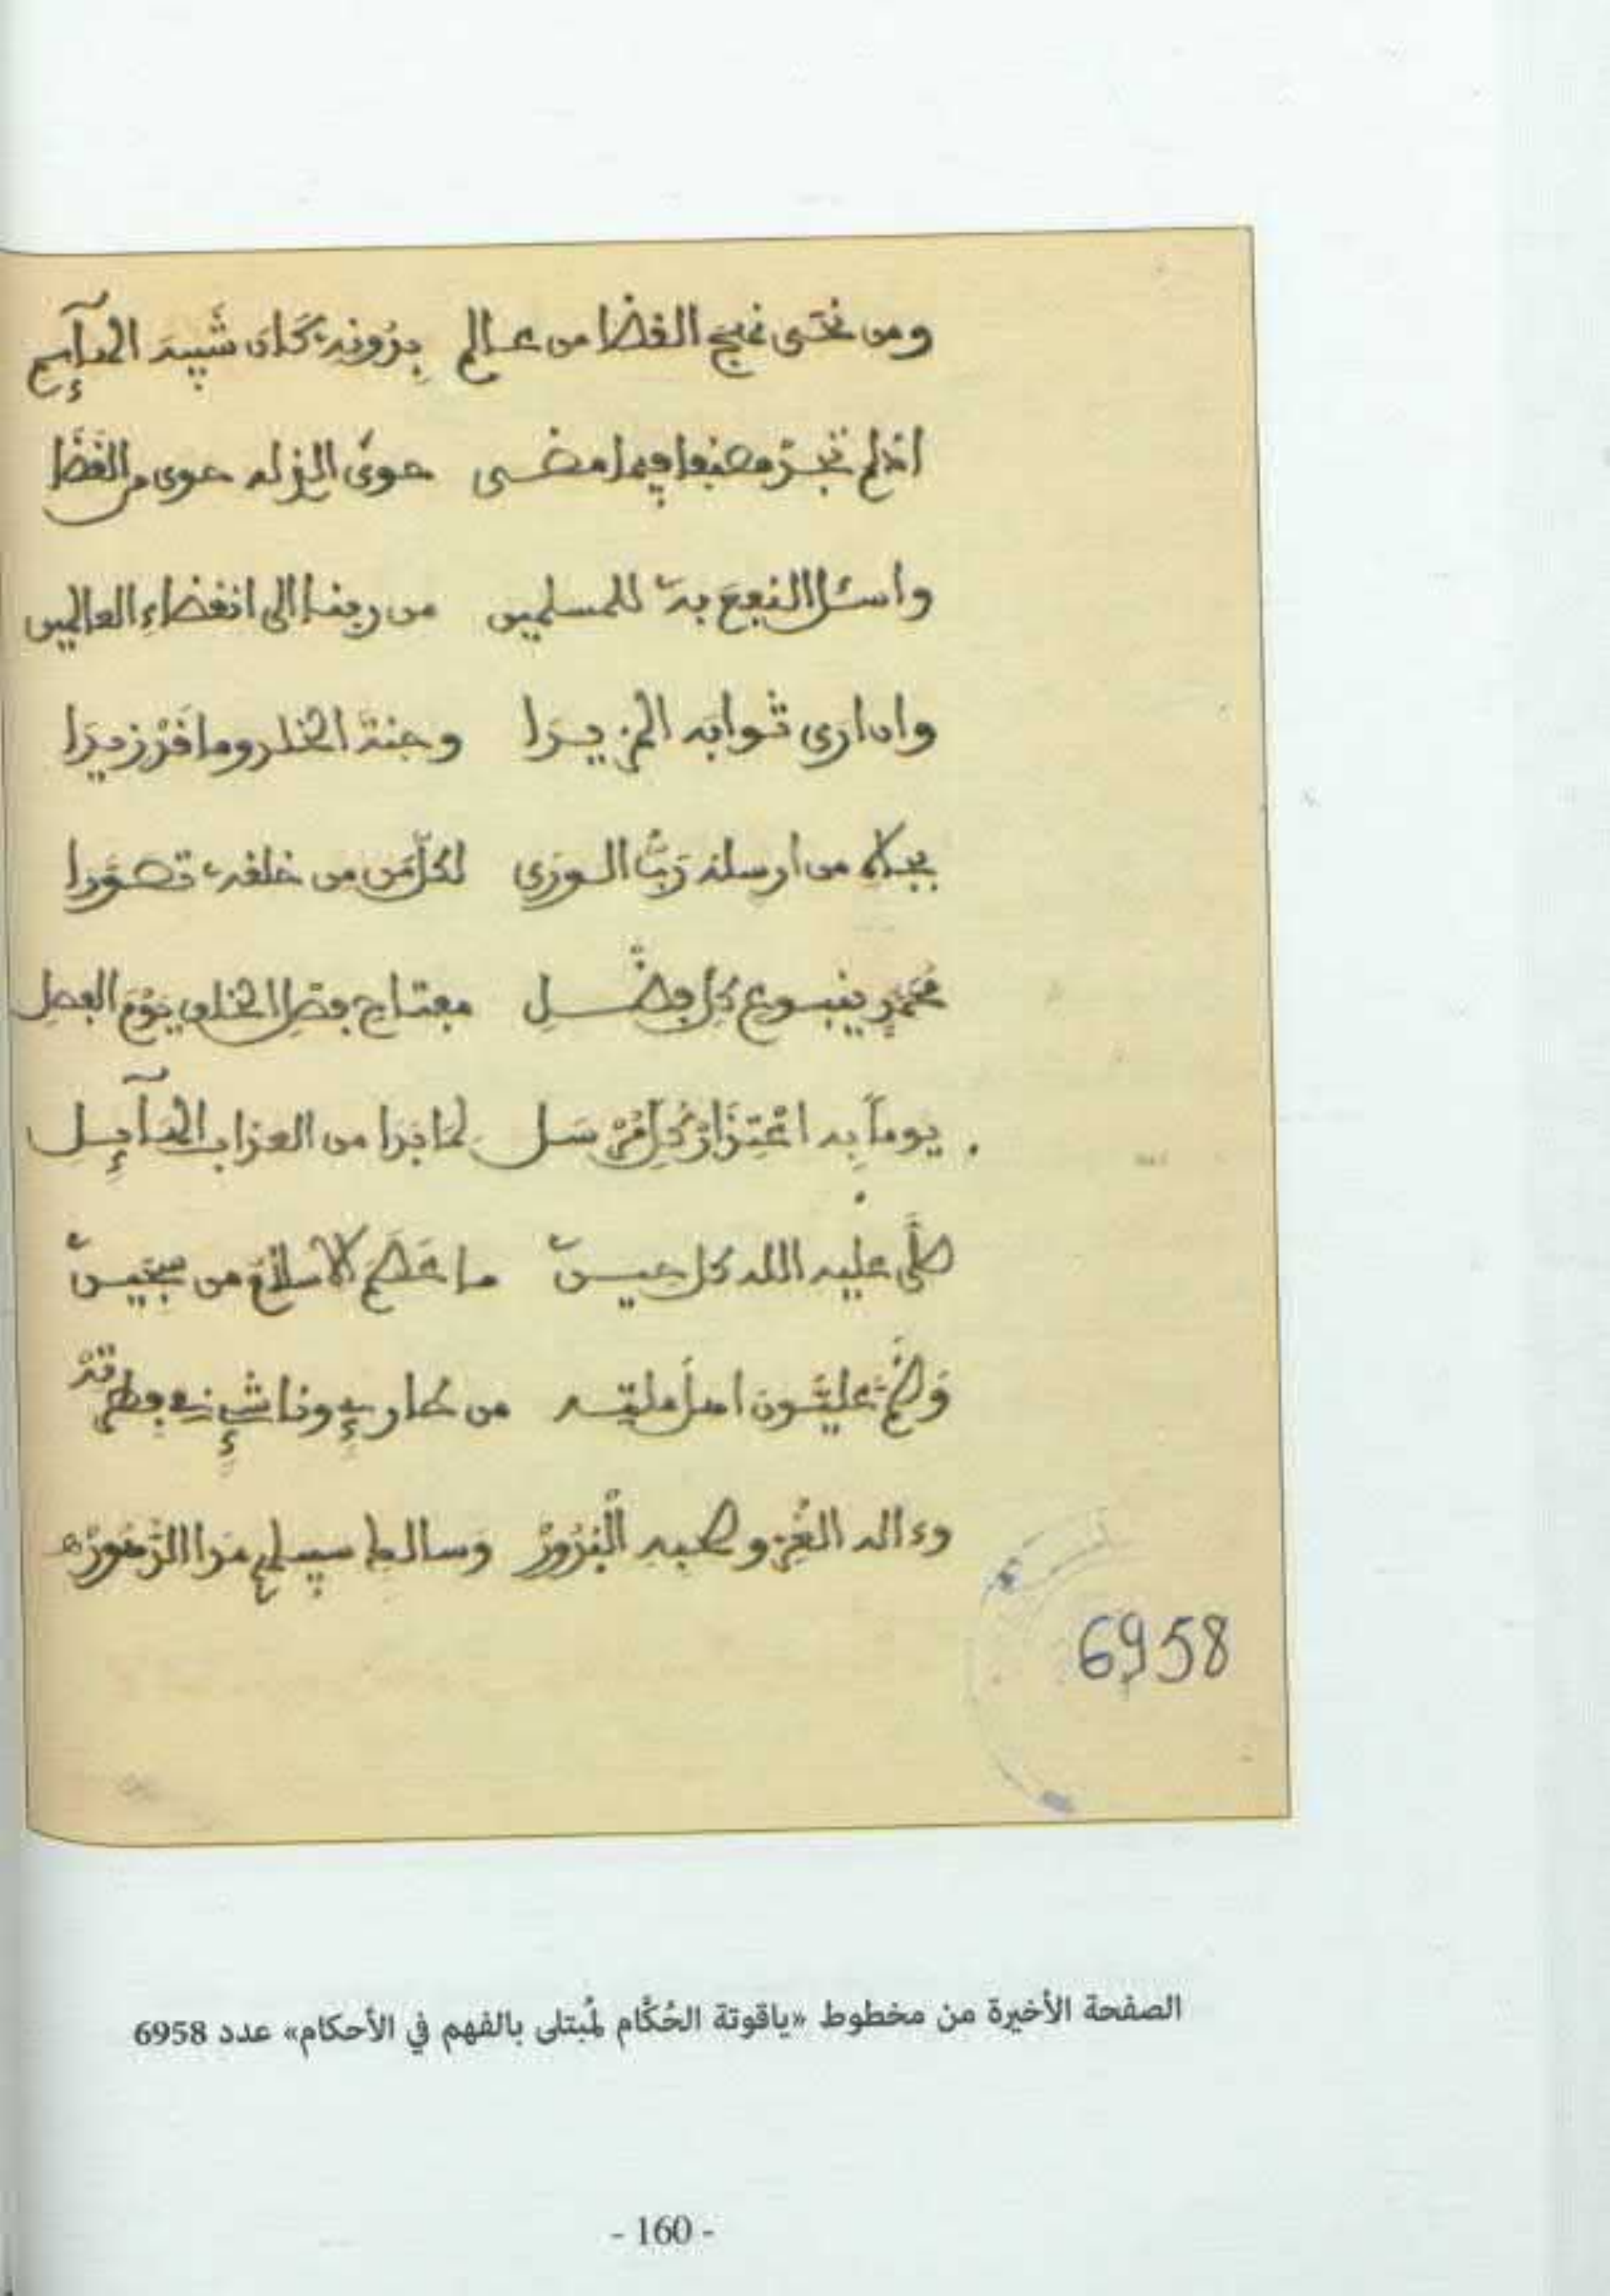 ومن نحى نهج القضا من عالم بدونه كان شبيه الهائم
اذ لم تجد مصنفا فيما مضى حوى الذي له حوى من القضا
واسئل النفع به للمسلمين من ربنا إلى انقضاء العالمين
وان ارى ثوابه المزيدا وجنة الخلد وما قد زيدا
بجاه من ارسله رب الورى لكل من من خلقه تصورا
محمد ينبوع كل فضل مفتاح فصل الخلق يوم الفصل
يوما به اعتذار كل مرسل لما بدا من العذاب الهائل
صلى عليه الله كل حين ما عصم الاسلام من سجين
وضم عليون اهل ملته من قارئ وناشئ في
وءاله الغر وصحبه البدور وسالك سبيلهم مدا الدهور
6958
الصفحة الأخيرة من مخطوط «ياقوتة الحُكَّام لمُبتلى بالفهم في الأحكام» عدد 6958
- 160 -